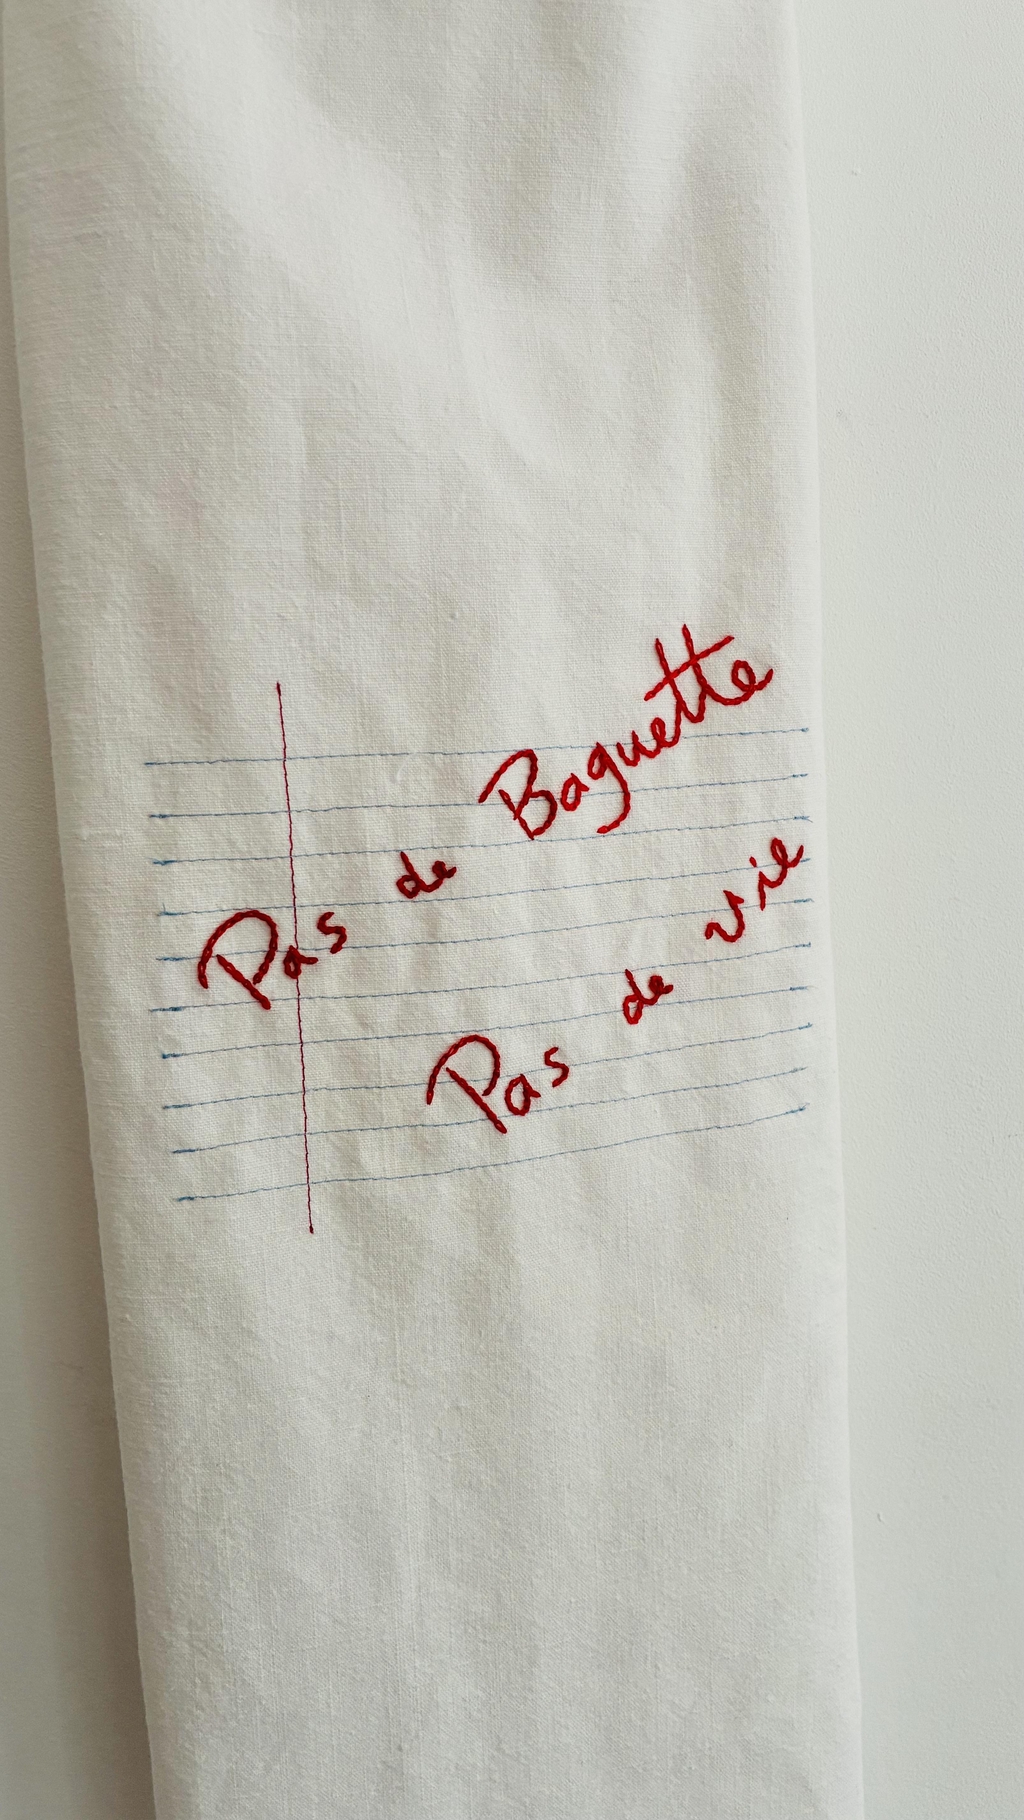 Pas de Baguette
Pas de vie